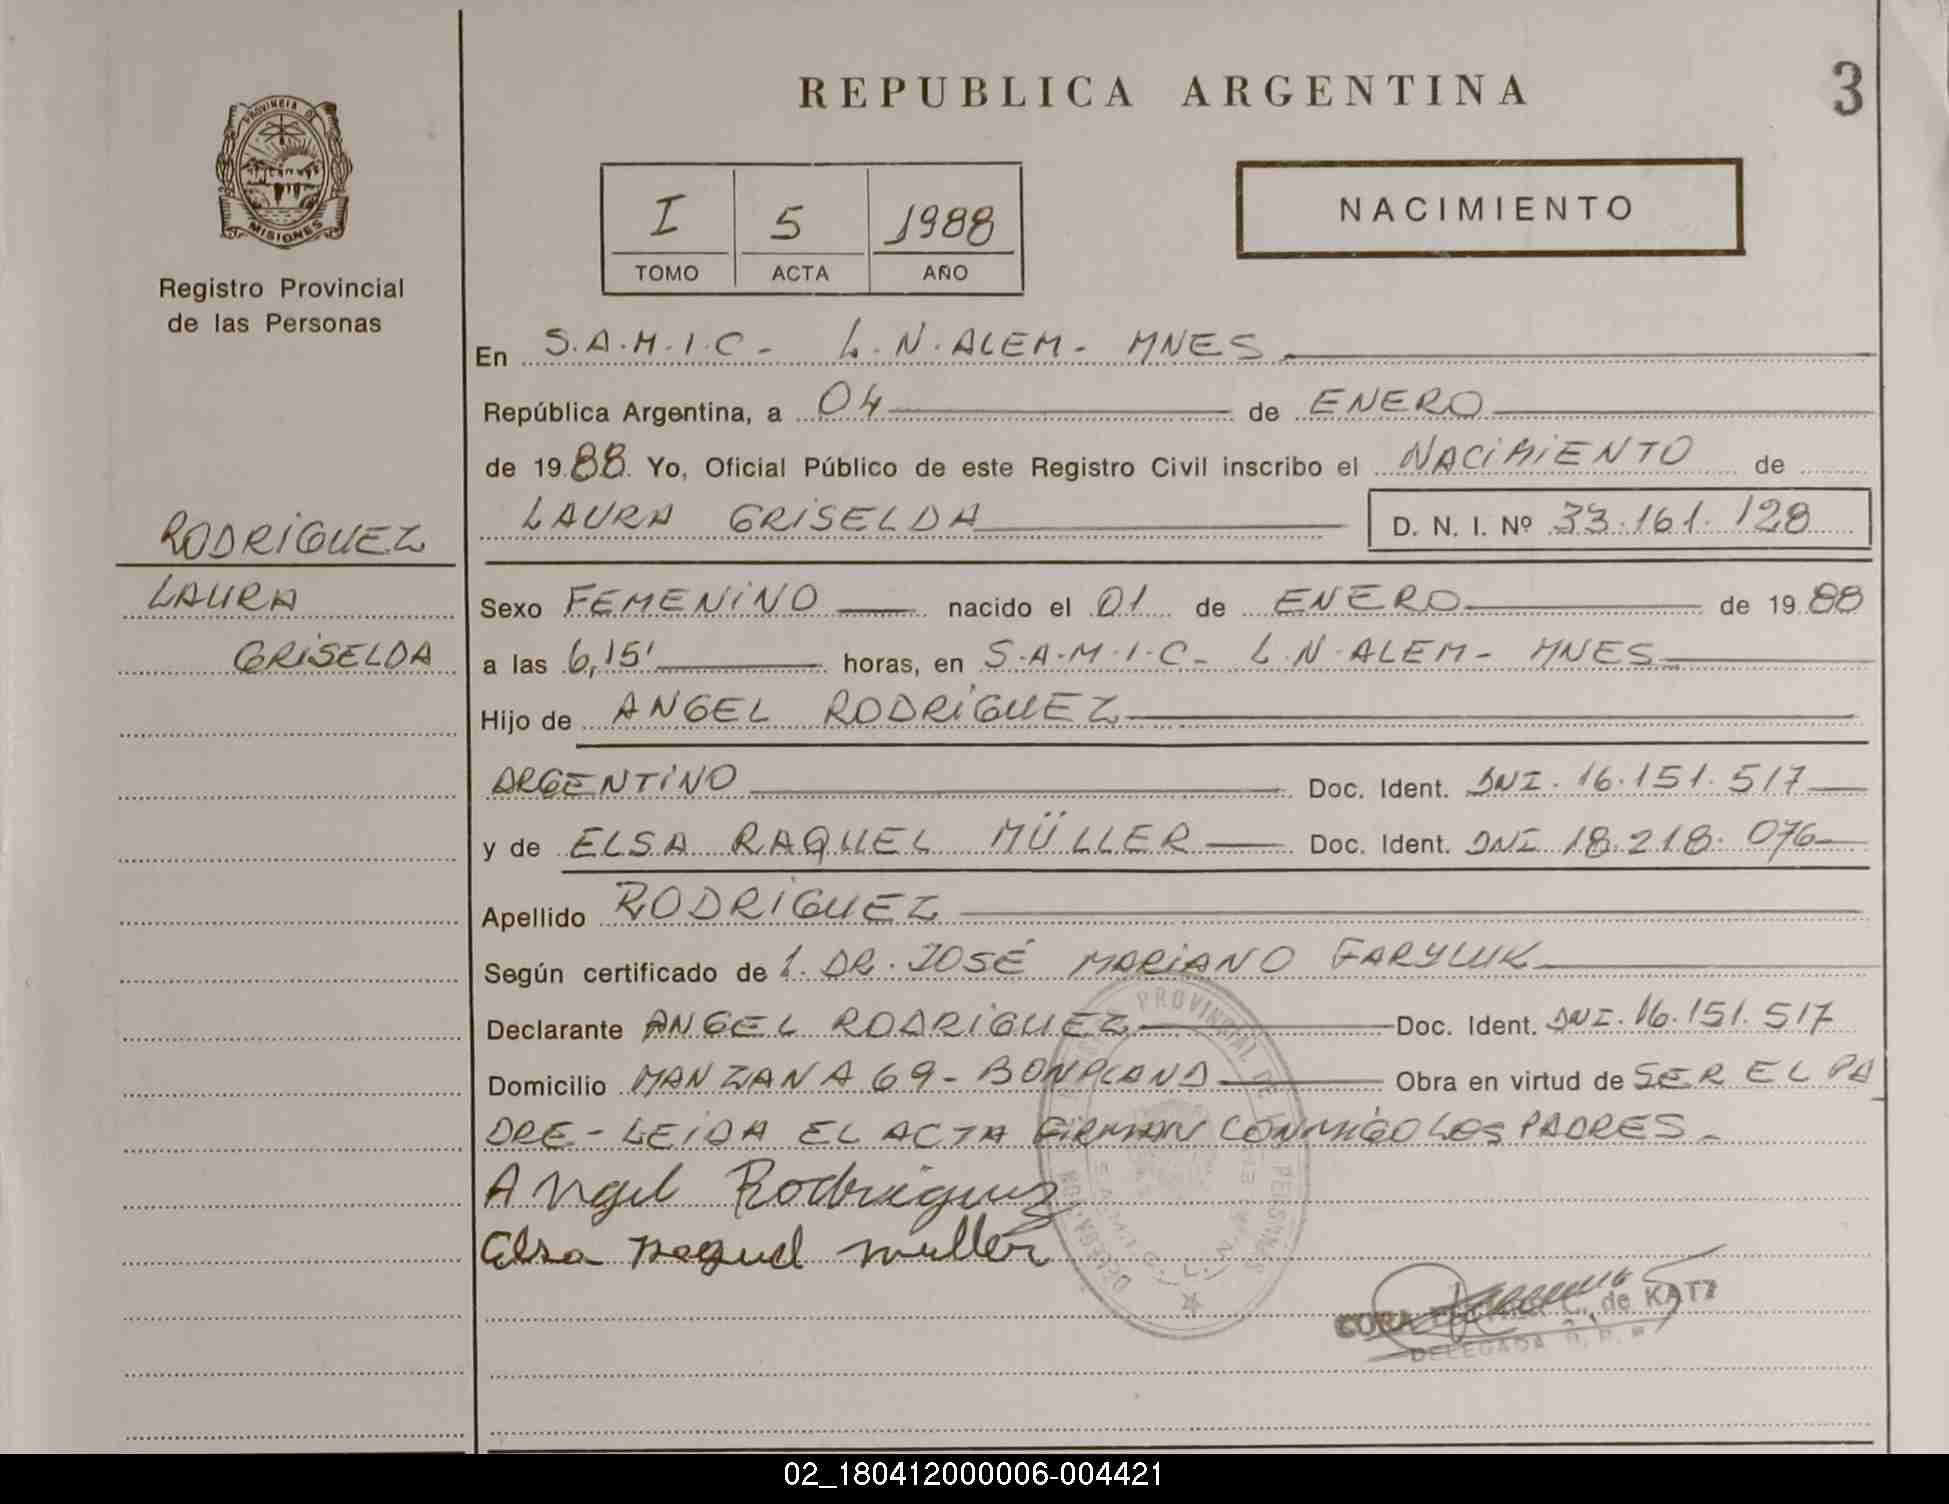 REPUBLICA ARGENTINA
3
PROVINCIA DE
MISIONES
Registro Provincial
de las Personas
I 5 1988
TOMO ACTA AÑO
NACIMIENTO
En S.A.M.I.C- L.N.ALEM- MNES
República Argentina, a 04 de ENERO
de 1988. Yo, Oficial Público de este Registro Civil inscribo el NACIMIENTO de
LAURA GRISELDA D. N. I. Nº 33.161.128
RODRIGUEZ
LAURA
GRISELDA
Sexo FEMENINO nacido el 01 de ENERO de 1988
a las 6,15' horas, en S.A.M.I.C- L.N.ALEM- MNES
Hijo de ANGEL RODRIGUEZ
ARGENTINO Doc. Ident. DNI. 16.151.517
y de ELSA RAQUEL MÜLLER Doc. Ident. DNI 18.218.076
Apellido RODRIGUEZ
Según certificado de 1. DR. JOSÉ MARIANO FARYLUK
Declarante ANGEL RODRIGUEZ Doc. Ident. DNI. 16.151.517
Domicilio MANZANA 69- BONPLAND Obra en virtud de SER EL PA
DRE- LEIDA EL ACTA FIRMAN CONMIGO LOS PADRES.
Angel Rodriguez
Elsa Raquel Muller
PROVINCIAL DE LAS PERSONAS
S.A.M.I.C. L.N.
C. de KATZ
DELEGADA
02_180412000006-004421